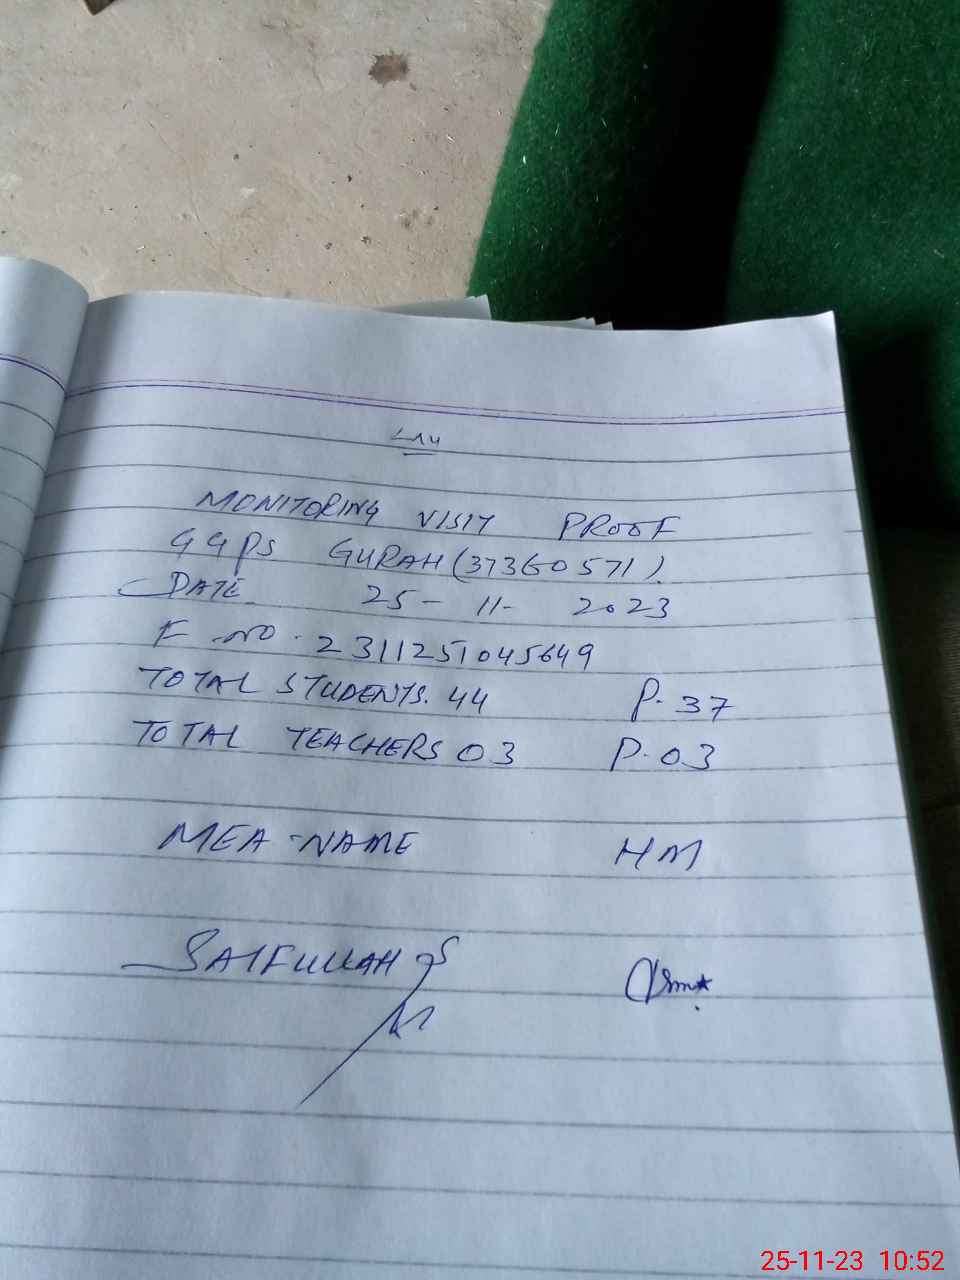 MONITORING VISIT PROOF
GGPS GURAH (37360571)
DATE 25-11-2023
F.NO. 2311251045649
TOTAL STUDENTS. 44 P. 37
TOTAL TEACHERS 03 P. 03
MEA-NAME HM
SAIFULLAH
25-11-23 10:52